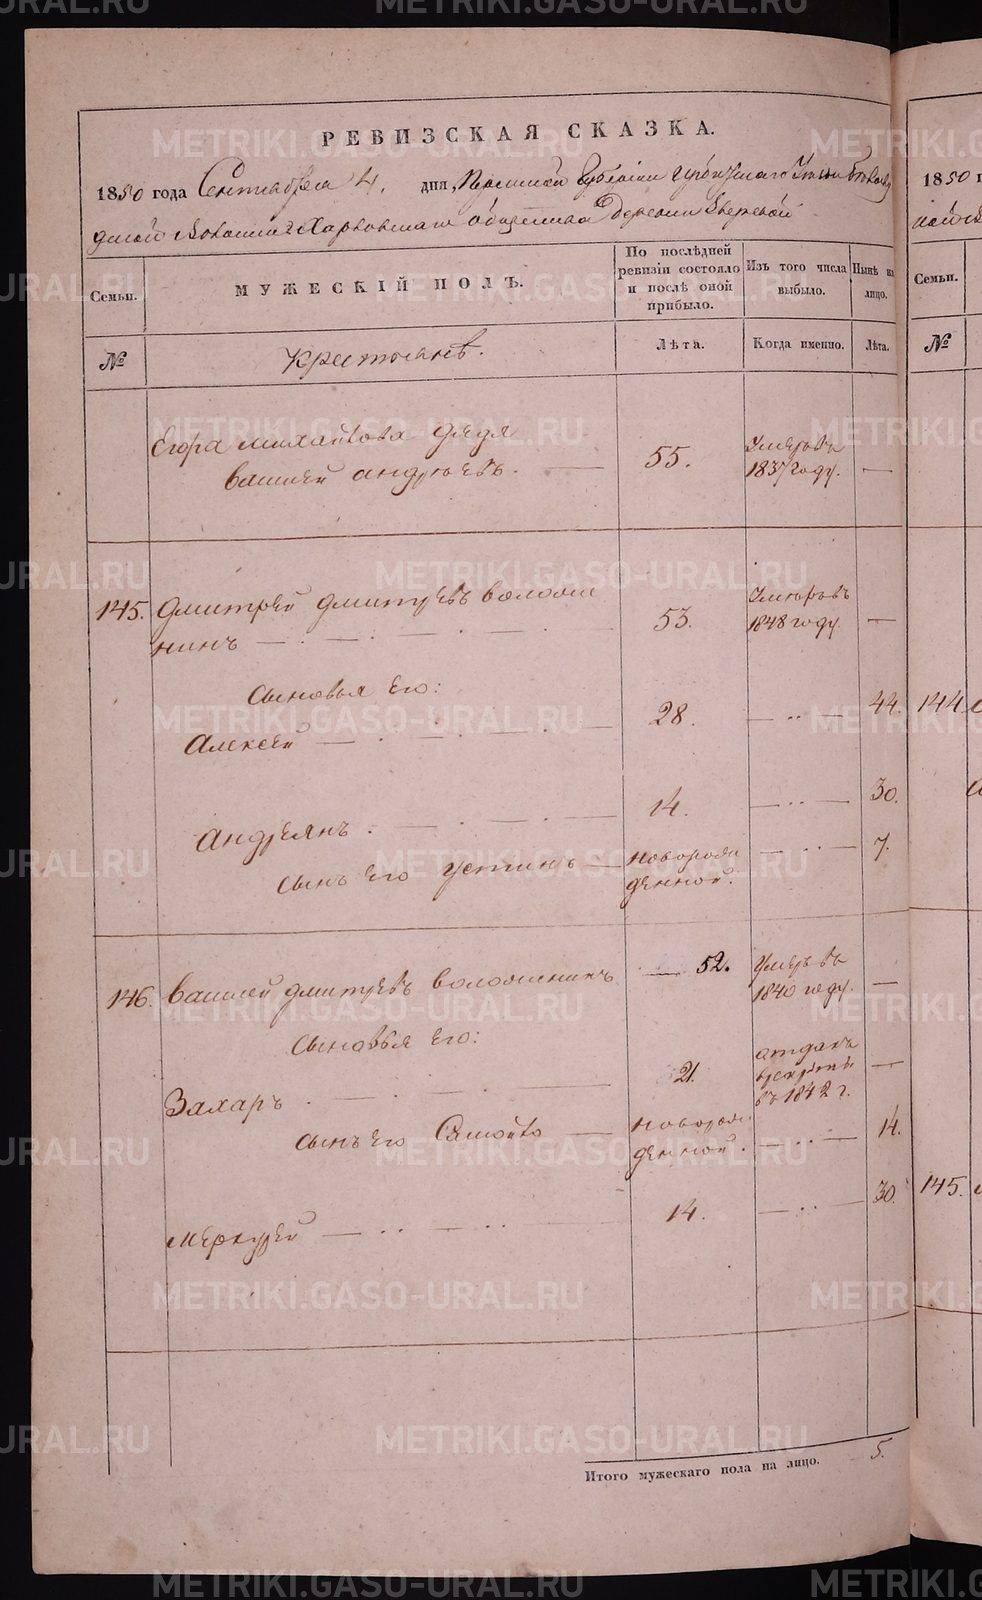 РЕВИЗСКАЯ СКАЗКА.
1850 года Сентября 4. дня, Пермской Губернии
Харловскаго общества Деревни
Семьи.
МУЖЕСКІЙ ПОЛЪ.
По послѣдней ревизіи состояло и послѣ оной прибыло.
Изъ того числа выбыло.
Нынѣ на лицо.
№
Крестьянѣ.
Лѣта.
Когда именно.
Лѣта.
Егора Михайлова дядя
Василей Андрѣевъ. 55. Умеръ въ 1837 году.
145. Дмитрей Дмитревъ Волоши
нинъ 53. Умеръ въ 1848 году.
Сыновья его:
Алексей 28. 44.
Андреянъ. 14. 30.
Сынъ его Устинъ новорож
денной. 7.
146. Василей Дмитревъ Волошининъ 52. Умеръ въ 1840 году.
Сыновья его:
Захаръ 21. отданъ
в рекруты
въ 1842 г.
Сынъ его Самойло новорож
денной. 14.
Меркурей 14. 30.
Итого мужескаго пола на лицо. 5.
1850 г
Семьи.
№
144
145.
METRIKI.GASO-URAL.RU